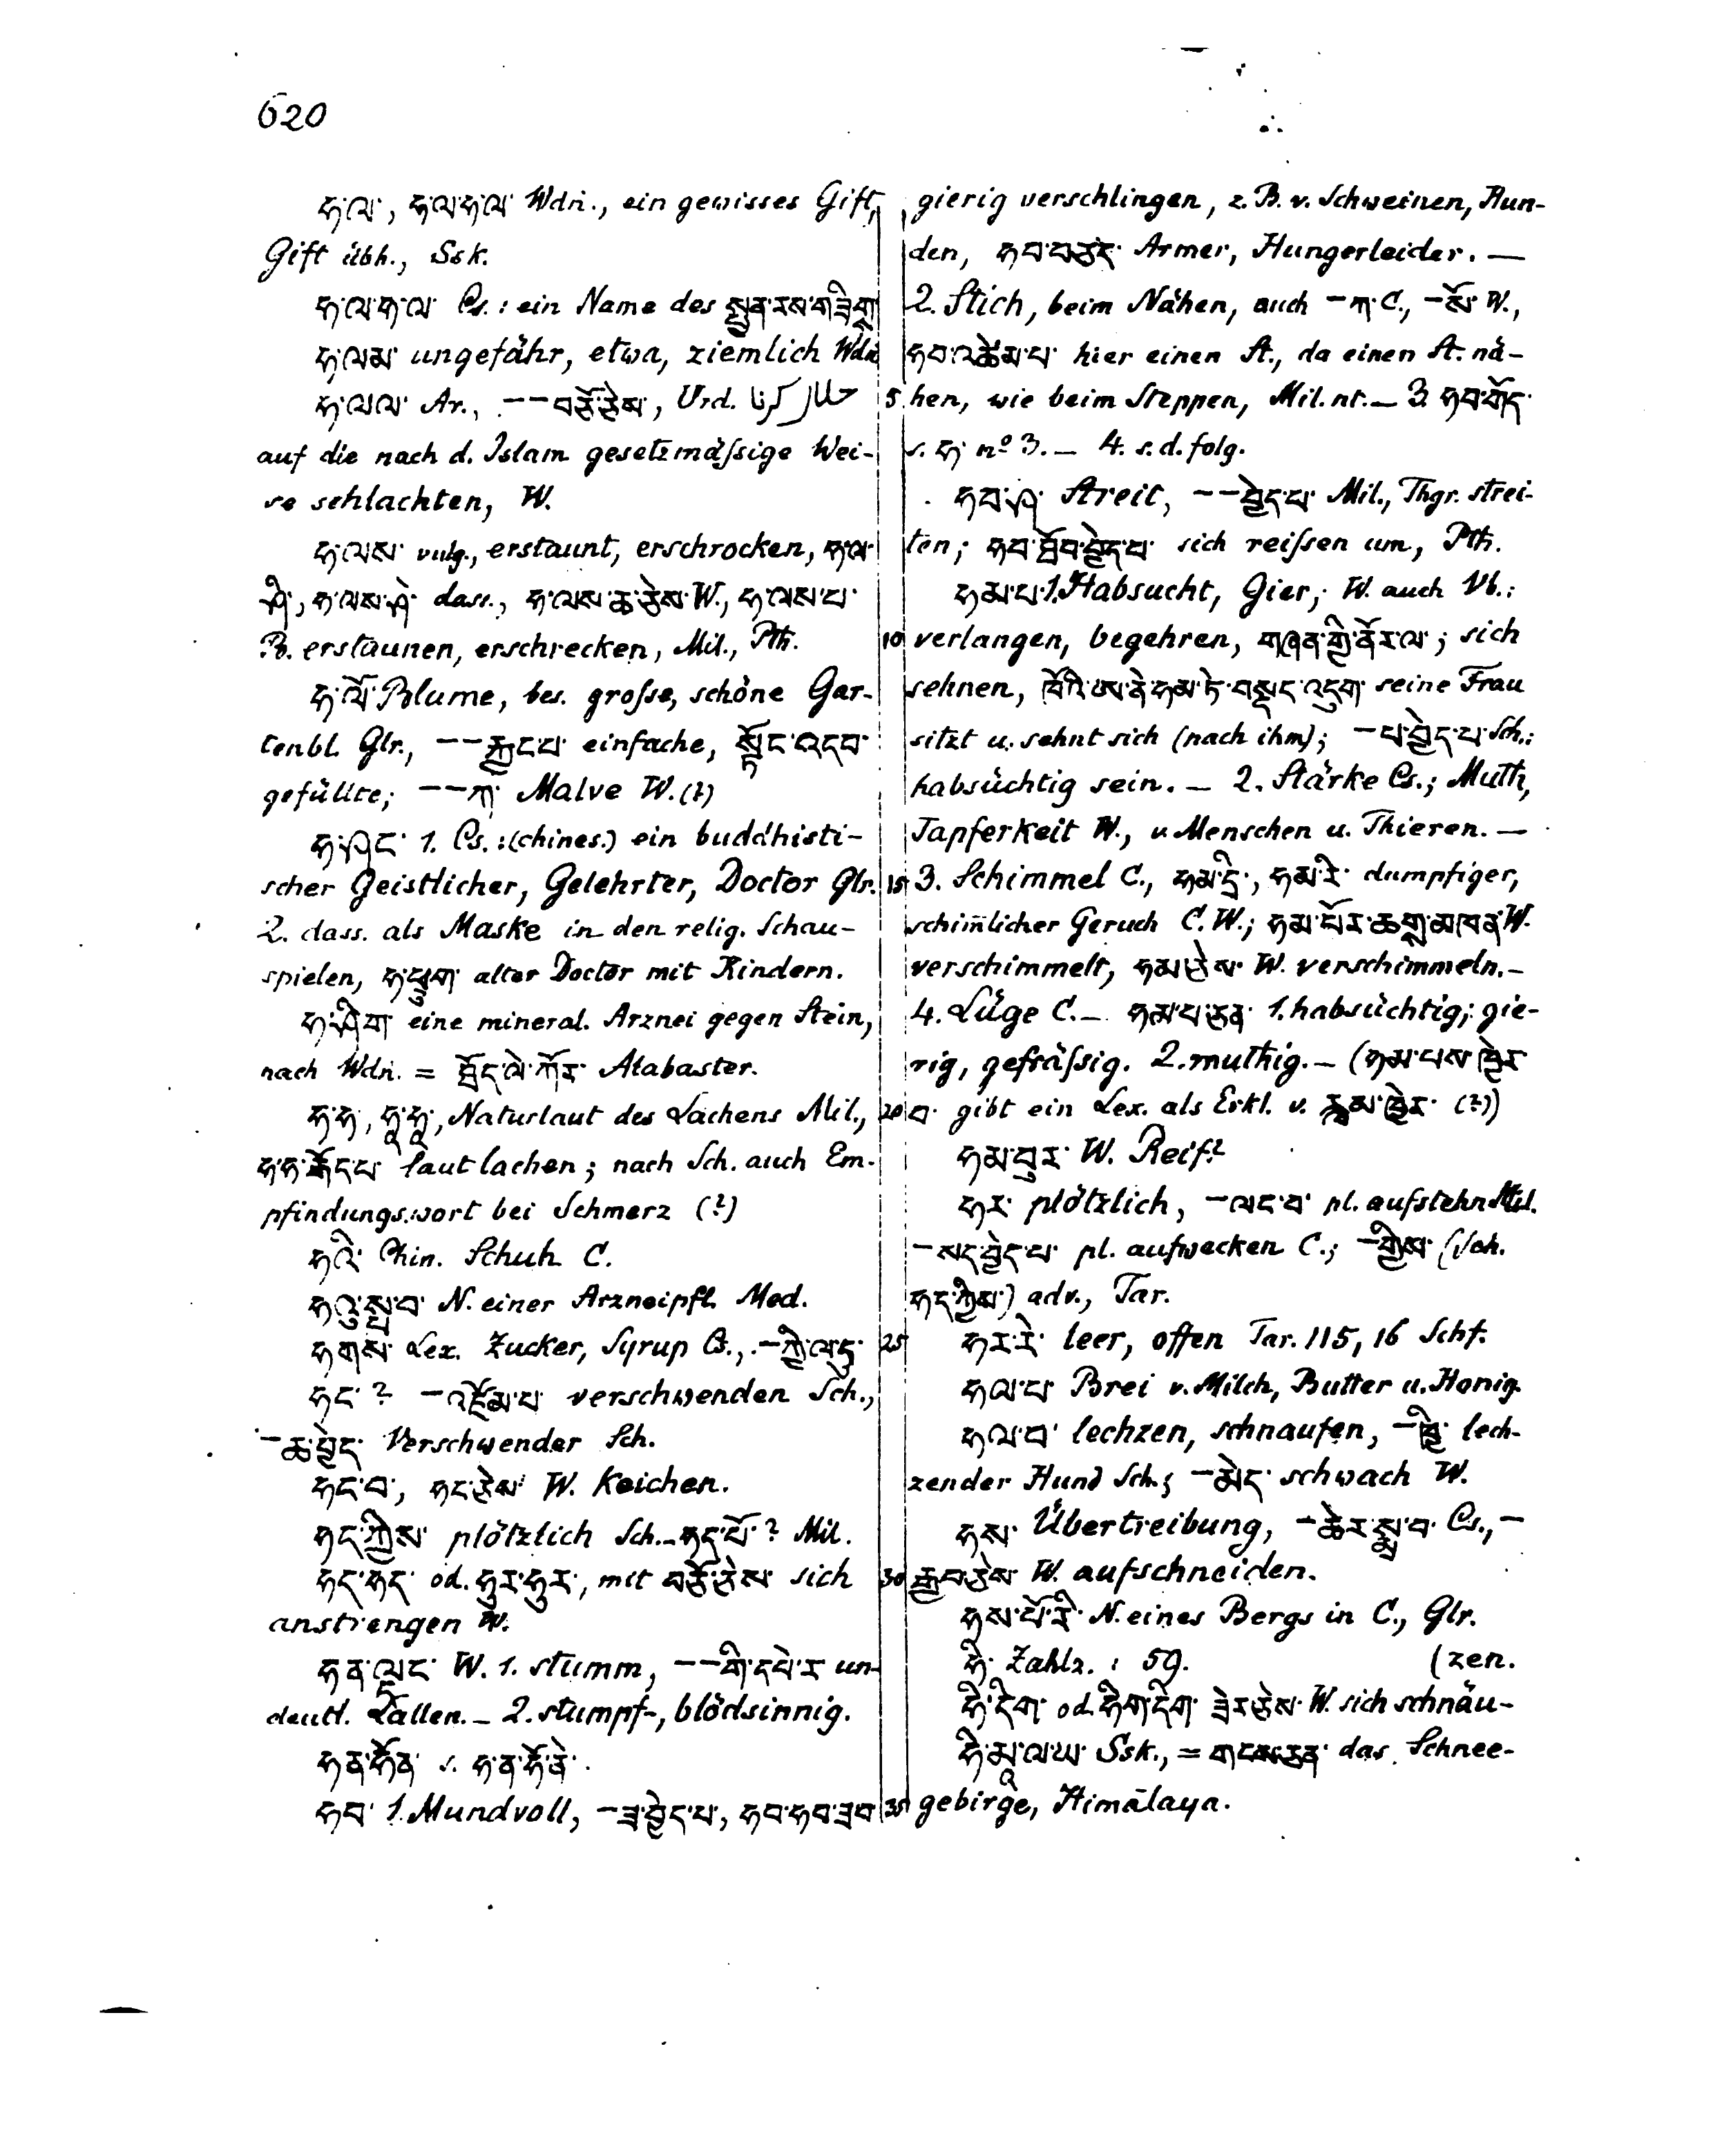 620
ཧ་ལ་, ཧ་ལ་ཧ་ལ་ Wdn., ein gewisses Gift,
Gift übh., Ssk.
ཧ་ལ་ཧ་ལ་ Cs.: ein Name des སྤྱན་རས་གཟིགས
ཧ་ལམ་ ungefähr, etwa, ziemlich Wdn
ཧ་ལལ་ Ar., -- བཅོ་ཅེས་, Urd.
auf die nach d. Islam gesetzmäßige Wei-
se schlachten, W.
ཧ་ལས་ vulg., erstaunt, erschrocken, ཧ་ལ་
ཤི་, ཧ་ལས་ཤེ་ dass., ཧ་ལས་ཆ་ཅེས་ W., ཧ་ལས་པ་
B. erstaunen, erschrecken, Mil., Pth.
ཧ་ལོ་ Blume, bes. große, schöne Gar-
tenbl. Glr., -- རྐྱང་པ་ einfache, སྟོང་འདབ་
gefüllte; -- ཀ་ Malve W. (?)
ཧ་ཤང་ 1. Cs.: (chines.) ein buddhisti-
scher Geistlicher, Gelehrter, Doctor Glr.
2. dass. als Maske in den relig. Schau-
spielen, ཧ་ཕྲུག་ alter Doctor mit Kindern.
ཧ་ཤིག་ eine mineral. Arznei gegen Stein,
nach Wdn. = ཐོད་ལེ་ཀོར་ Alabaster.
ཧ་ཧ་, ཧཱུ་ཧཱུ་, Naturlaut des Lachens Mil.,
ཧ་ཧ་རྒོད་པ་ laut lachen; nach Sch. auch Em-
pfindungswort bei Schmerz (?)
ཧའི་ Chin. Schuh C.
ཧའུ་སྤྲ་བ་ N. einer Arzneipfl. Med.
ཧགས་ Lex. Zucker, Syrup Cs., - ཀྱི་ལ་དུ་
ཧང་ ? - འཛོམ་པ་ verschwenden Sch.,
- ཆ་བྱེད་ Verschwender Sch.
ཧང་བ་, ཧང་ཅེས་ W. Keichen.
ཧད་ཀྱིས་ plötzlich Sch. - ཧད་པོ་ ? Mil.
ཧད་ཧད་ od. ཧུར་ཧུར་, mit བཅོ་ཅེས་ sich
anstrengen W.
ཧན་ལྡང་ W. 1. stumm, -- གི་དཔེ་ར་ un-
deutl. Lallen. - 2. stumpf-, blödsinnig.
ཧན་ཧོན་ s. ཧ་ན་ཧོ་ནེ་.
ཧབ་ 1. Mundvoll, - ཟ་བྱེད་པ་, ཧབ་ཧབ་ཟབ
gierig verschlingen, z. B. v. Schweinen, Hun-
den, ཧབ་བཅད་ Armer, Hungerleider. -
2. Stich, beim Nähen, auch - ཀ་ C., - སོ་ W.,
ཧབ་འཚེམ་པ་ hier einen St., da einen St. nä-
5 hen, wie beim Steppen, Mil. nt. - 3. ཧབ་གོད་
s. ཧ་ nº 3. - 4. s. d. folg.
ཧབ་ཤ་ Streit, -- བྱེད་པ་ Mil., Thgr. strei-
ten; ཧབ་ཐོབ་བྱེད་པ་ sich reißen um, Pth.
ཧམ་པ་ 1. Habsucht, Gier; W. auch Vb.:
10 verlangen, begehren, གཞན་གྱི་ནོར་ལ་; sich
sehnen, ཁོའི་ཨ་ནེ་ཧམ་ཏེ་བསྡད་འདུག་ seine Frau
sitzt u. sehnt sich (nach ihm); - པ་བྱེད་པ་ Sch.:
habsüchtig sein. - 2. Stärke Cs.; Muth,
Tapferkeit W., v. Menschen u. Thieren. -
15 3. Schimmel C., ཧམ་དྲི་, ཧམ་རི་ dumpfiger,
schim̄licher Geruch C. W.; ཧམ་པོར་ཆགས་མཁན་ W.
verschimmelt, ཧམ་ཅེས་ W. verschimmeln. -
4. Lüge C. - ཧམ་པ་ཅན་ 1. habsüchtig; gie-
rig, gefräßig. 2. muthig. - (ཧམ་པས་ཁྱེར
20 བ་ gibt ein Lex. als Erkl. v. རྐམ་ཁྱེར་ (?))
ཧམ་བུར་ W. Reif?
ཧར་ plötzlich, - ལང་བ་ pl. aufstehn Mil.
- སད་བྱེད་པ་ pl. aufwecken C.; - གྱིས་ (Sch.
ཧད་ཀྱིས་) adv., Tar.
25 ཧར་རེ་ leer, offen Tar. 115, 16 Schf.
ཧལ་པ་ Brei v. Milch, Butter u. Honig.
ཧལ་བ་ lechzen, schnaufen, - ཁྱི་ lech-
zender Hund Sch.; - མེད་ schwach W.
ཧས་ Übertreibung, - ཆེར་སྨྲ་བ་ Cs., -
30 རྒྱབ་ཅེས་ W. aufschneiden.
ཧས་པོ་རི་ N. eines Bergs in C., Glr.
ཧི་ Zahlz.: 59. (zen.
ཧི་དིག་ od. ཧིག་དིག་ ཟེར་ཅེས་ W. sich schnäu-
ཧི་མཱ་ལ་ཡ་ Ssk., = གངས་ཅན་ das Schnee-
35 gebirge, Himālaya.